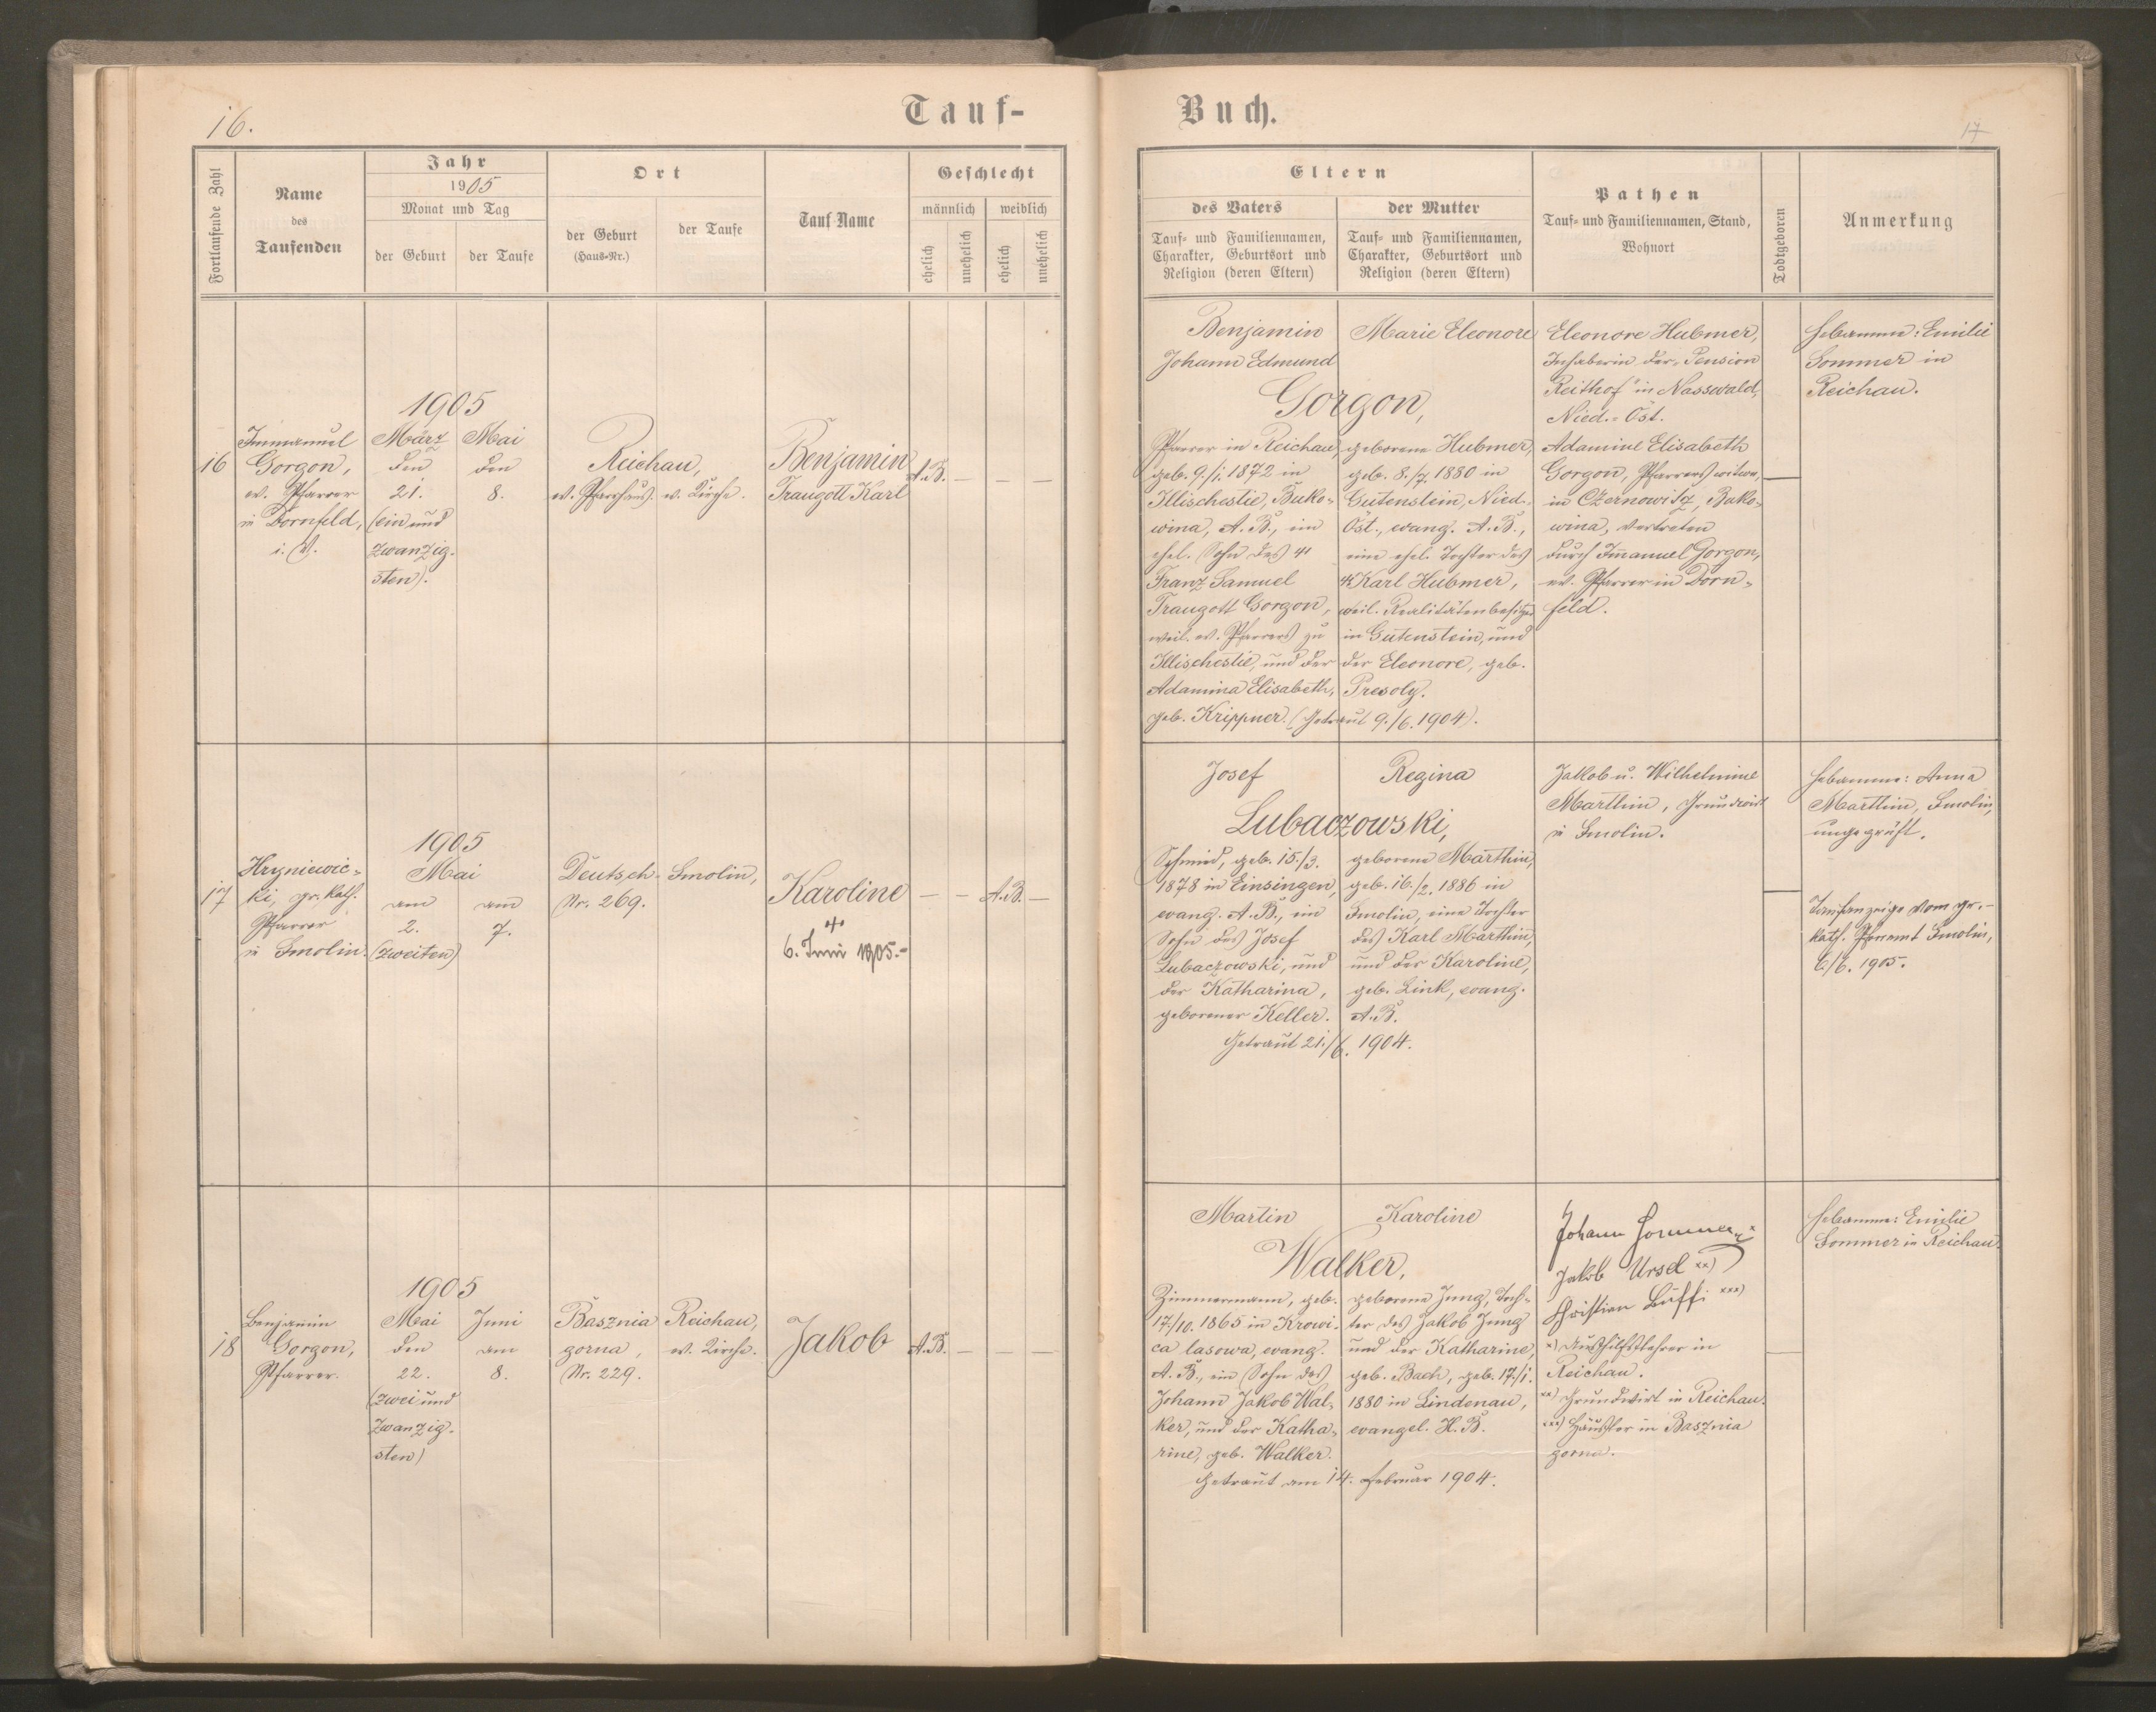 16.
Tauf-
Buch.
17
Fortlaufende Zahl
Name
des
Taufenden
Jahr
1905
Monat und Tag
der Geburt
der Taufe
Ort
der Geburt
(Haus-Nr.)
der Taufe
Tauf-Name
Geschlecht
männlich
weiblich
ehelich
unehelich
ehelich
unehelich
Eltern
des Vaters
Tauf- und Familiennamen,
Charakter, Geburtsort und
Religion (deren Eltern)
der Mutter
Tauf- und Familiennamen,
Charakter, Geburtsort und
Religion (deren Eltern)
Pathen
Tauf- und Familiennamen, Stand,
Wohnort
Todtgeboren
Anmerkung
16
Immanuel
Gorgon,
ev. Pfarrer
in Dornfeld,
i. V.
1905
März
den
21.
(ein und
zwanzig-
sten).
Mai
den
8.
Reichau,
ev. Pfarrhaus. ev. Kirche.
Benjamin
Traugott Karl
A.B. — — —
Benjamin
Johann Edmund
Marie Eleonore
Gorgon,
Pfarrer in Reichau,
geb. 9./1. 1872 in
Illischestie, Buko-
wina, A. B., ein
ehel. Sohn des
Franz Samuel
Traugott Gorgon,
weil. ev. Pfarrers zu
Illischestie, und der
Adamina Elisabeth,
geb. Krippner. (Getraut 9./6. 1904).
geborene Hubmer,
geb. 8./7. 1880 in
Gutenstein, Nied.-
Öst., evang. A. B.,
eine ehel. Tochter des
Karl Hubmer,
weil. Realitätenbesitzer
in Gutenstein, und
der Eleonore, geb.
Presoly.
Eleonore Hubmer,
Inhaberin der „Pension
Reithof“ in Nasswald,
Nied.-Öst.
Adamine Elisabeth
Gorgon, Pfarrerswitwe,
in Czernowitz, Buko-
wina, vertreten
durch Im̄anuel Gorgon,
ev. Pfarrer in Dorn-
feld.
—
Hebamme: Emilie
Sommer in
Reichau.
17
Hryniewic-
ki, gr. kath.
Pfarrer
in Smolin.
1905
Mai
am
2.
(zweiten)
am
7.
Deutsch-
Nr. 269.
Smolin,
Karoline
+
6. Juni 1905.-
— — A.B. —
Josef
Regina
Lubaczowski,
Schmied, geb. 15./3.
1878 in Einsingen,
evang. A. B., ein
Sohn des Josef
Lubaczowski, und
der Katharina,
geborener Keller.
Getraut 21./6. 1904.
geborene Marthin,
geb. 16./2. 1886 in
Smolin, eine Tochter
des Karl Marthin,
und der Karoline,
geb. Link, evang.
A. B.
Jakob u. Wilhelmine
Marthin, Grundwirt
in Smolin.
—
Hebamme: Anna
Marthin, Smolin,
ungeprüft.
Taufanzeige vom gr.-
kath. Pfarramt Smolin,
6./6. 1905.
18
Benjamin
Gorgon,
Pfarrer.
1905
Mai
den
22.
(zwei und
zwanzig-
sten)
Juni
am
8.
Basznia
gorna,
Nr. 229.
Reichau,
ev. Kirche.
Jakob
A.B. — — —
Martin
Karoline
Walker,
Zimmermann, geb.
17./10. 1865 in Krowi-
ca lasowa, evang.
A. B., ein Sohn des
Johann Jakob Wal-
ker, und der Katha-
rine, geb. Walker.
Getraut am 14. Februar 1904.
geborene Jung, Toch-
ter des Jakob Jung
und der Katharine,
geb. Bach, geb. 17./1.
1880 in Lindenau,
evangel. H. B.
Johann Sommer x)
Jakob Ursel xx)
Christian Büffi xxx)
x) Aushilfslehrer in
Reichau.
xx) Grundwirt in Reichau.
xxx) Häusler in Basznia
gorna.
—
Hebamme: Emilie
Sommer in Reichau.